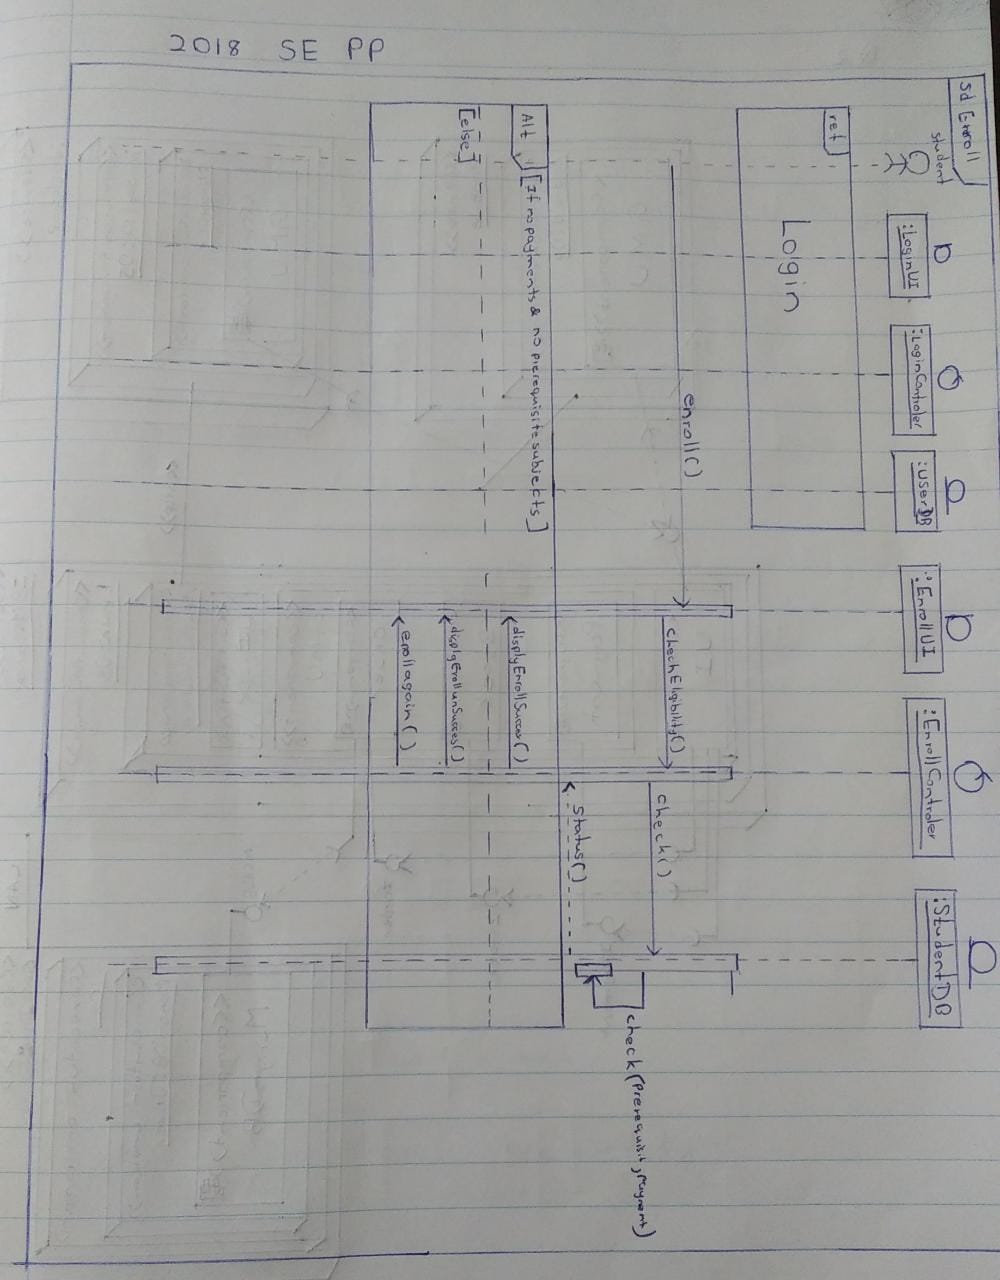 2018 SE PP
sd Enroll
student
:LoginUI
:LoginControler
:UserDB
:EnrollUI
:EnrollControler
:StudentDB
ref
Login
enroll()
chechEligibility()
check()
check(Prerequisit, Payment)
status()
Alt
[If no payments & no prerequisite subjects]
displyEnrollSucces()
[else]
displyErollunSucces()
enrollagain()